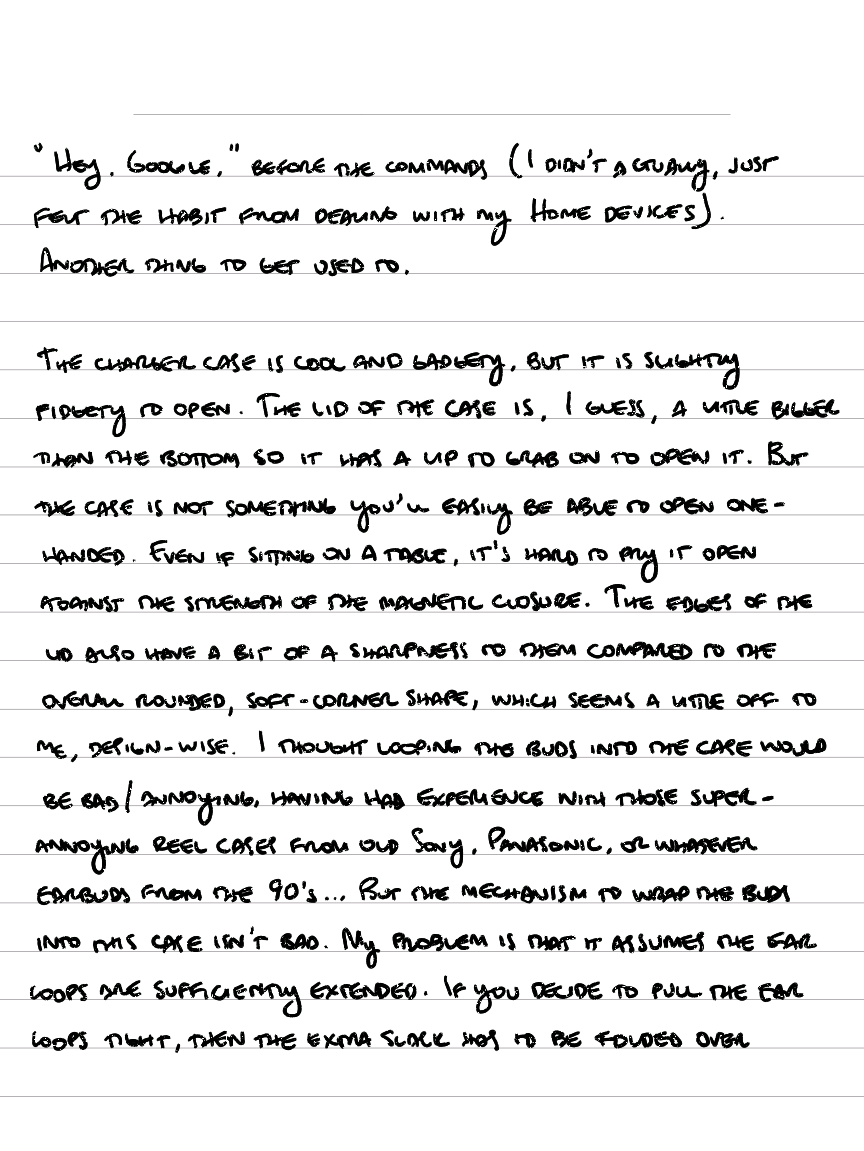 "Hey, Google," before the commands (I didn't actually, just
felt the habit from dealing with my Home devices).
Another thing to get used to.
The charger case is cool and gadgety, but it is slightly
fidgety to open. The lid of the case is, I guess, a little bigger
than the bottom so it has a lip to grab on to open it. But
the case is not something you'll easily be able to open one-
handed. Even if sitting on a table, it's hard to pry it open
against the strength of the magnetic closure. The edges of the
lid also have a bit of a sharpness to them compared to the
overall rounded, soft-corner shape, which seems a little off to
me, design-wise. I thought looping the buds into the case would
be bad/annoying, having had experience with those super-
annoying reel cases from old Sony, Panasonic, or whatever
earbuds from the 90's... But the mechanism to wrap the buds
into this case isn't bad. My problem is that it assumes the ear
loops are sufficiently extended. If you decide to pull the ear
loops tight, then the extra slack has to be folded over